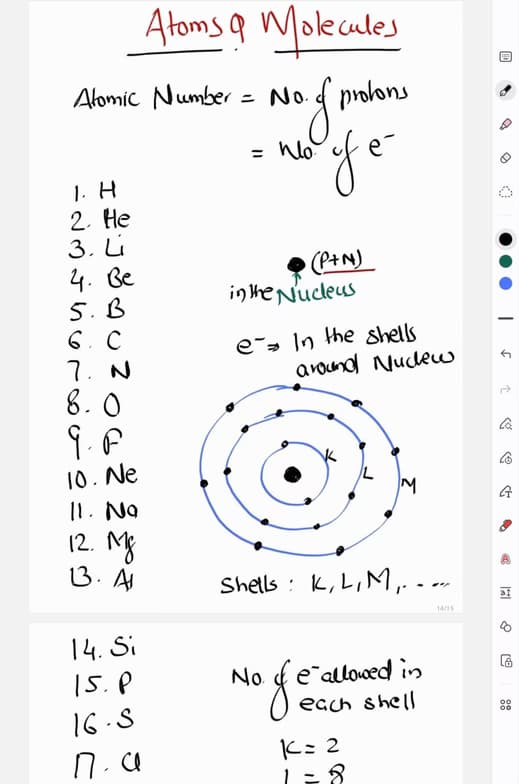 Atoms & Molecules
Atomic Number = No. of protons
= No. of e⁻
1. H
2. He
3. Li
4. Be
5. B
6. C
7. N
8. O
9. F
10. Ne
11. Na
12. Mg
13. Al
(P+N)
in the Nucleus
e⁻ ⇒ In the shells
around Nucleus
K
L
M
Shells : K, L, M, . . . .
14/15
14. Si
15. P
16. S
17. Cl
No. of e⁻ allowed in
each shell
K = 2
L = 8